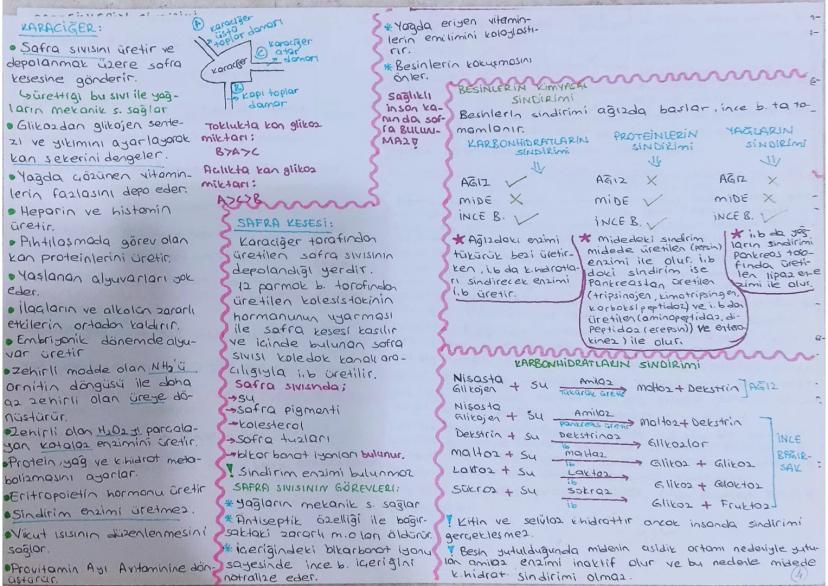 KARACİĞER:
• Safra sıvısını üretir ve
depolanmak üzere safra
kesesine gönderir.
↳ ürettiği bu sıvı ile yağ-
ların mekanik s. sağlar
• Glikozdan glikojen sente-
zi ve yıkımını ayarlayarak
kan şekerini dengeler.
• Yağda çözünen vitamin-
lerin fazlasını depo eder.
• Heparin ve histamin
üretir.
• Pıhtılaşmada görev alan
kan proteinlerini üretir.
• Yaşlanan alyuvarları yok
eder.
• ilaçların ve alkolün zararlı
etkilerin ortadan kaldırır.
• Embriyonik dönemde alyu-
var üretir
• Zehirli madde olan NH₃'ü
ornitin döngüsü ile daha
az zehirli olan üreye dö-
nüştürür.
• Zehirli olan H₂O₂ yi parçala-
yan katalaz enzimini üretir.
• Protein, yağ ve k.hidrat meta-
bolizmasını ayarlar.
• Eritropoietin hormonu üretir
• Sindirim enzimi üretmez.
• Vücut ısısının düzenlenmesini
sağlar.
• Provitamin A yı A vitaminine dön-
üştürür.
A
karaciğer
üstü
toplar damarı
C
karaciğer
atar
damarı
karaciğer
B
kapı toplar
damar
Toklukta kan glikoz
miktarı:
B>A>C
Açlıkta kan glikoz
miktarı:
A>C>B
SAFRA KESESİ:
Karaciğer tarafından
üretilen safra sıvısının
depolandığı yerdir.
12 parmak b. tarafından
üretilen kolesistokinin
hormonunun uyarması
ile safra kesesi kasılır
ve içinde bulunan safra
sıvısı koledok kanalı ara-
cılığıyla i.b üretilir.
Safra sıvısında;
→ su
→ safra pigmenti
→ kolesterol
→ safra tuzları
→ bikarbonat iyonları bulunur.
! Sindirim enzimi bulunmaz
SAFRA SIVISININ GÖREVLERİ:
* yağların mekanik s. sağlar
* Antiseptik özelliği ile bağır-
saktaki zararlı m.o ları öldürür.
* içeriğindeki bikarbonat iyonu
sayesinde ince b. içeriğini
nötralize eder.
* Yağda eriyen vitamin-
lerin emilimini kolaylaştı-
rır.
* Besinlerin kokuşmasını
önler.
Sağlıklı
insan ka-
nında saf-
ra BULUN-
MAZ!
BESİNLERİN KİMYASAL
SİNDİRİMİ
Besinlerin sindirimi ağızda başlar, ince b. ta ta-
mamlanır.
KARBONHİDRATLARIN SİNDİRİMİ
AĞIZ ✓
MİDE ✗
İNCE B. ✓
PROTEİNLERİN SİNDİRİMİ
AĞIZ ✗
MİDE ✓
İNCE B. ✓
YAĞLARIN SİNDİRİMİ
AĞIZ ✗
MİDE ✗
İNCE B. ✓
★ Ağızdaki enzimi
tükürük bezi üretir-
ken, i.b da k.hidratla-
rı sindirecek enzimi
i.b üretir.
★ midedeki sindirim
midede üretilen (pepsin)
enzimi ile olur. i.b
daki sindirim ise
Pankreastan üretilen
(tripsinojen, kimotripsinojen,
karboksipeptidaz) ve i.b da
üretilen (aminopeptidaz, di-
peptidaz (erepsin)) ve entero-
kinaz) ile olur.
★ i.b da yağ-
ların sindirimi
Pankreas tara-
fında üreti-
len lipaz en-
zimi ile olur.
KARBONHİDRATLARIN SİNDİRİMİ
Nişasta
Glikojen + Su → Amilaz Tükürük üretir → maltoz + Dekstrin ] AĞIZ
Nişasta
Glikojen + Su → Amilaz pankreas üretir → maltoz + Dekstrin
Dekstrin + Su → Dekstrinaz ib → Glikozlar
maltoz + Su → maltaz ib → Glikoz + Glikoz
Laktoz + Su → Laktaz ib → Glikoz + Galaktoz
Sükroz + Su → Sükraz ib → Glikoz + Fruktoz
İNCE
BAĞIR-
SAK
! Kitin ve selüloz k.hidrattır ancak insanda sindirimi
gerçekleşmez.
! Besin yutulduğunda midenin asidik ortamı nedeniyle yutu-
lan amilaz enzimi inaktif olur ve bu nedenle midede
k.hidrat sindirimi olmaz.
4